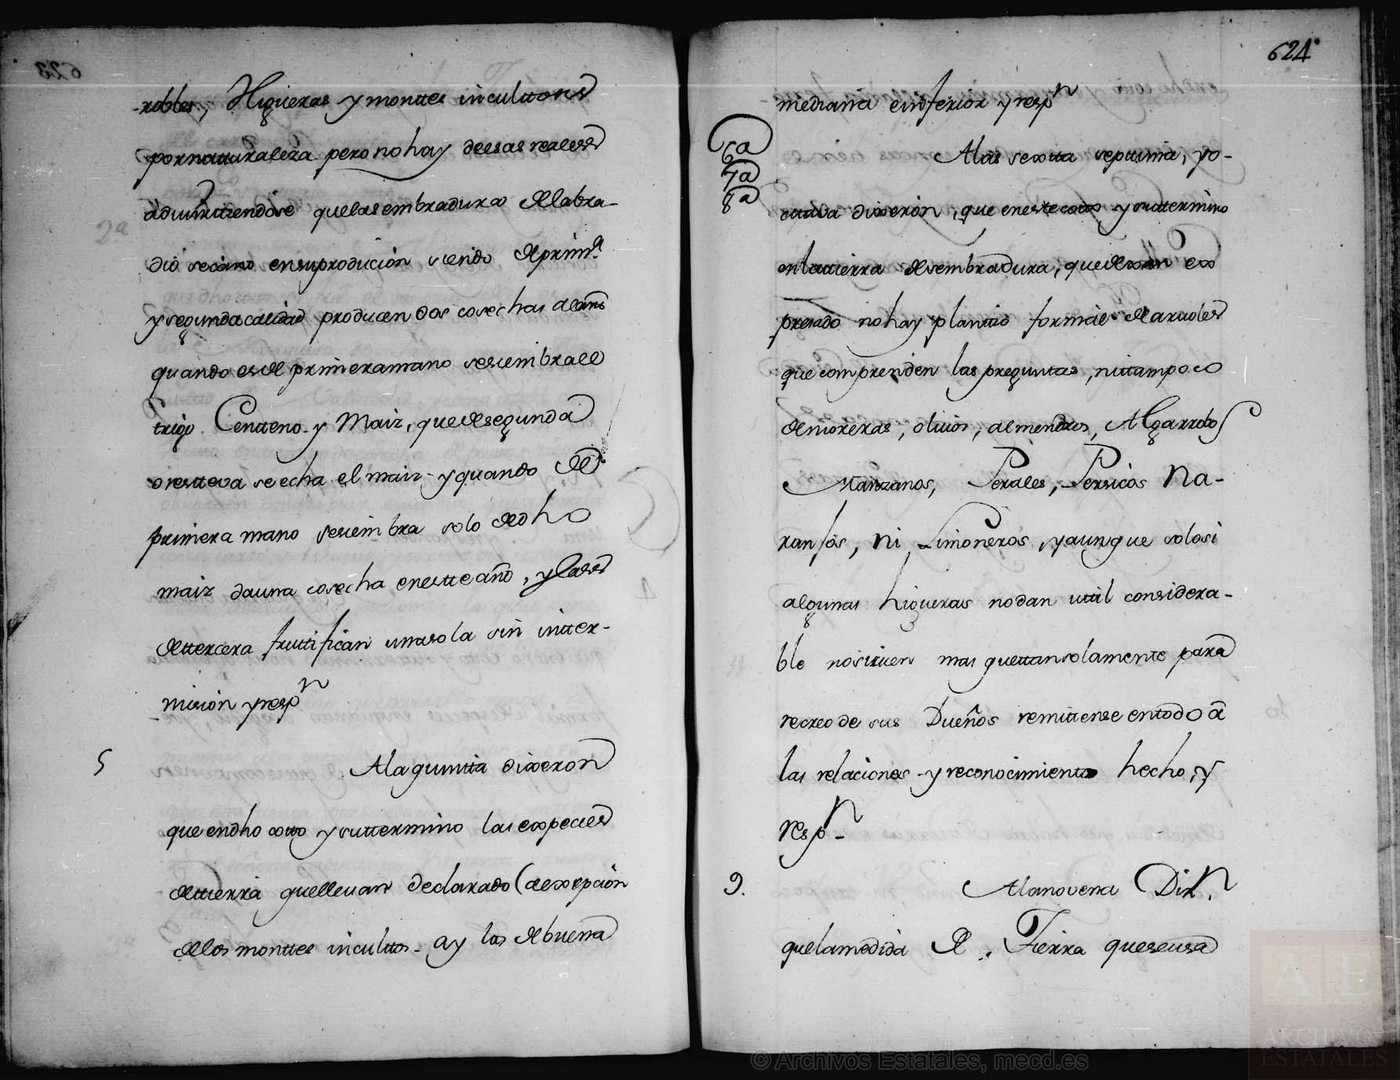 robles, Higueras y monttes incultos
por natturaleza pero no hay de esas reales
advirttiendose que la sembradura de labra-
dio secano en su produción siendo de prima
y segunda calidad producen dos cosechas al año
quando es de primera mano se siembra el
trigo. Centteno y Maiz, que de segunda
o restteva se echa el maiz y quando de
primera mano se siembra solo de dho
maiz da una cosecha en este año, y las
de ttercera fruttifican una sola sin intter-
misión y respn
5 A la quintta dixeron
que en dho cotto y su ttermino las especies
de ttierra que llevan declarado (a excepción
de los monttes incultos - ay las de buena
624
mediana e inferior y respn
6a
7a
8a
A las sextta septtima, y o-
cttava dixeron, que en este cotto y su ttermino
en la ttierra de sembradura, que dexan ex
presado no hay planttio formal de arvoles
que comprenden las pregunttas, ni ttampoco
de moreras, olivos, almendros, Algarrobos
Manzanos, Perales, Persicos Na-
ranjos, ni Limoneros, y aunque solo si
algunas higueras no dan util considera-
ble no sirven mas que ttan solamente para
recreo de sus Dueños remittense en todo a
las relaciones y reconocimiento hecho, y
respn
9. A la novena Dixn.
que la medida de Tierra que se usa
© Archivos Estatales, mecd.es
A E
ARCHIVOS
ESTATALES